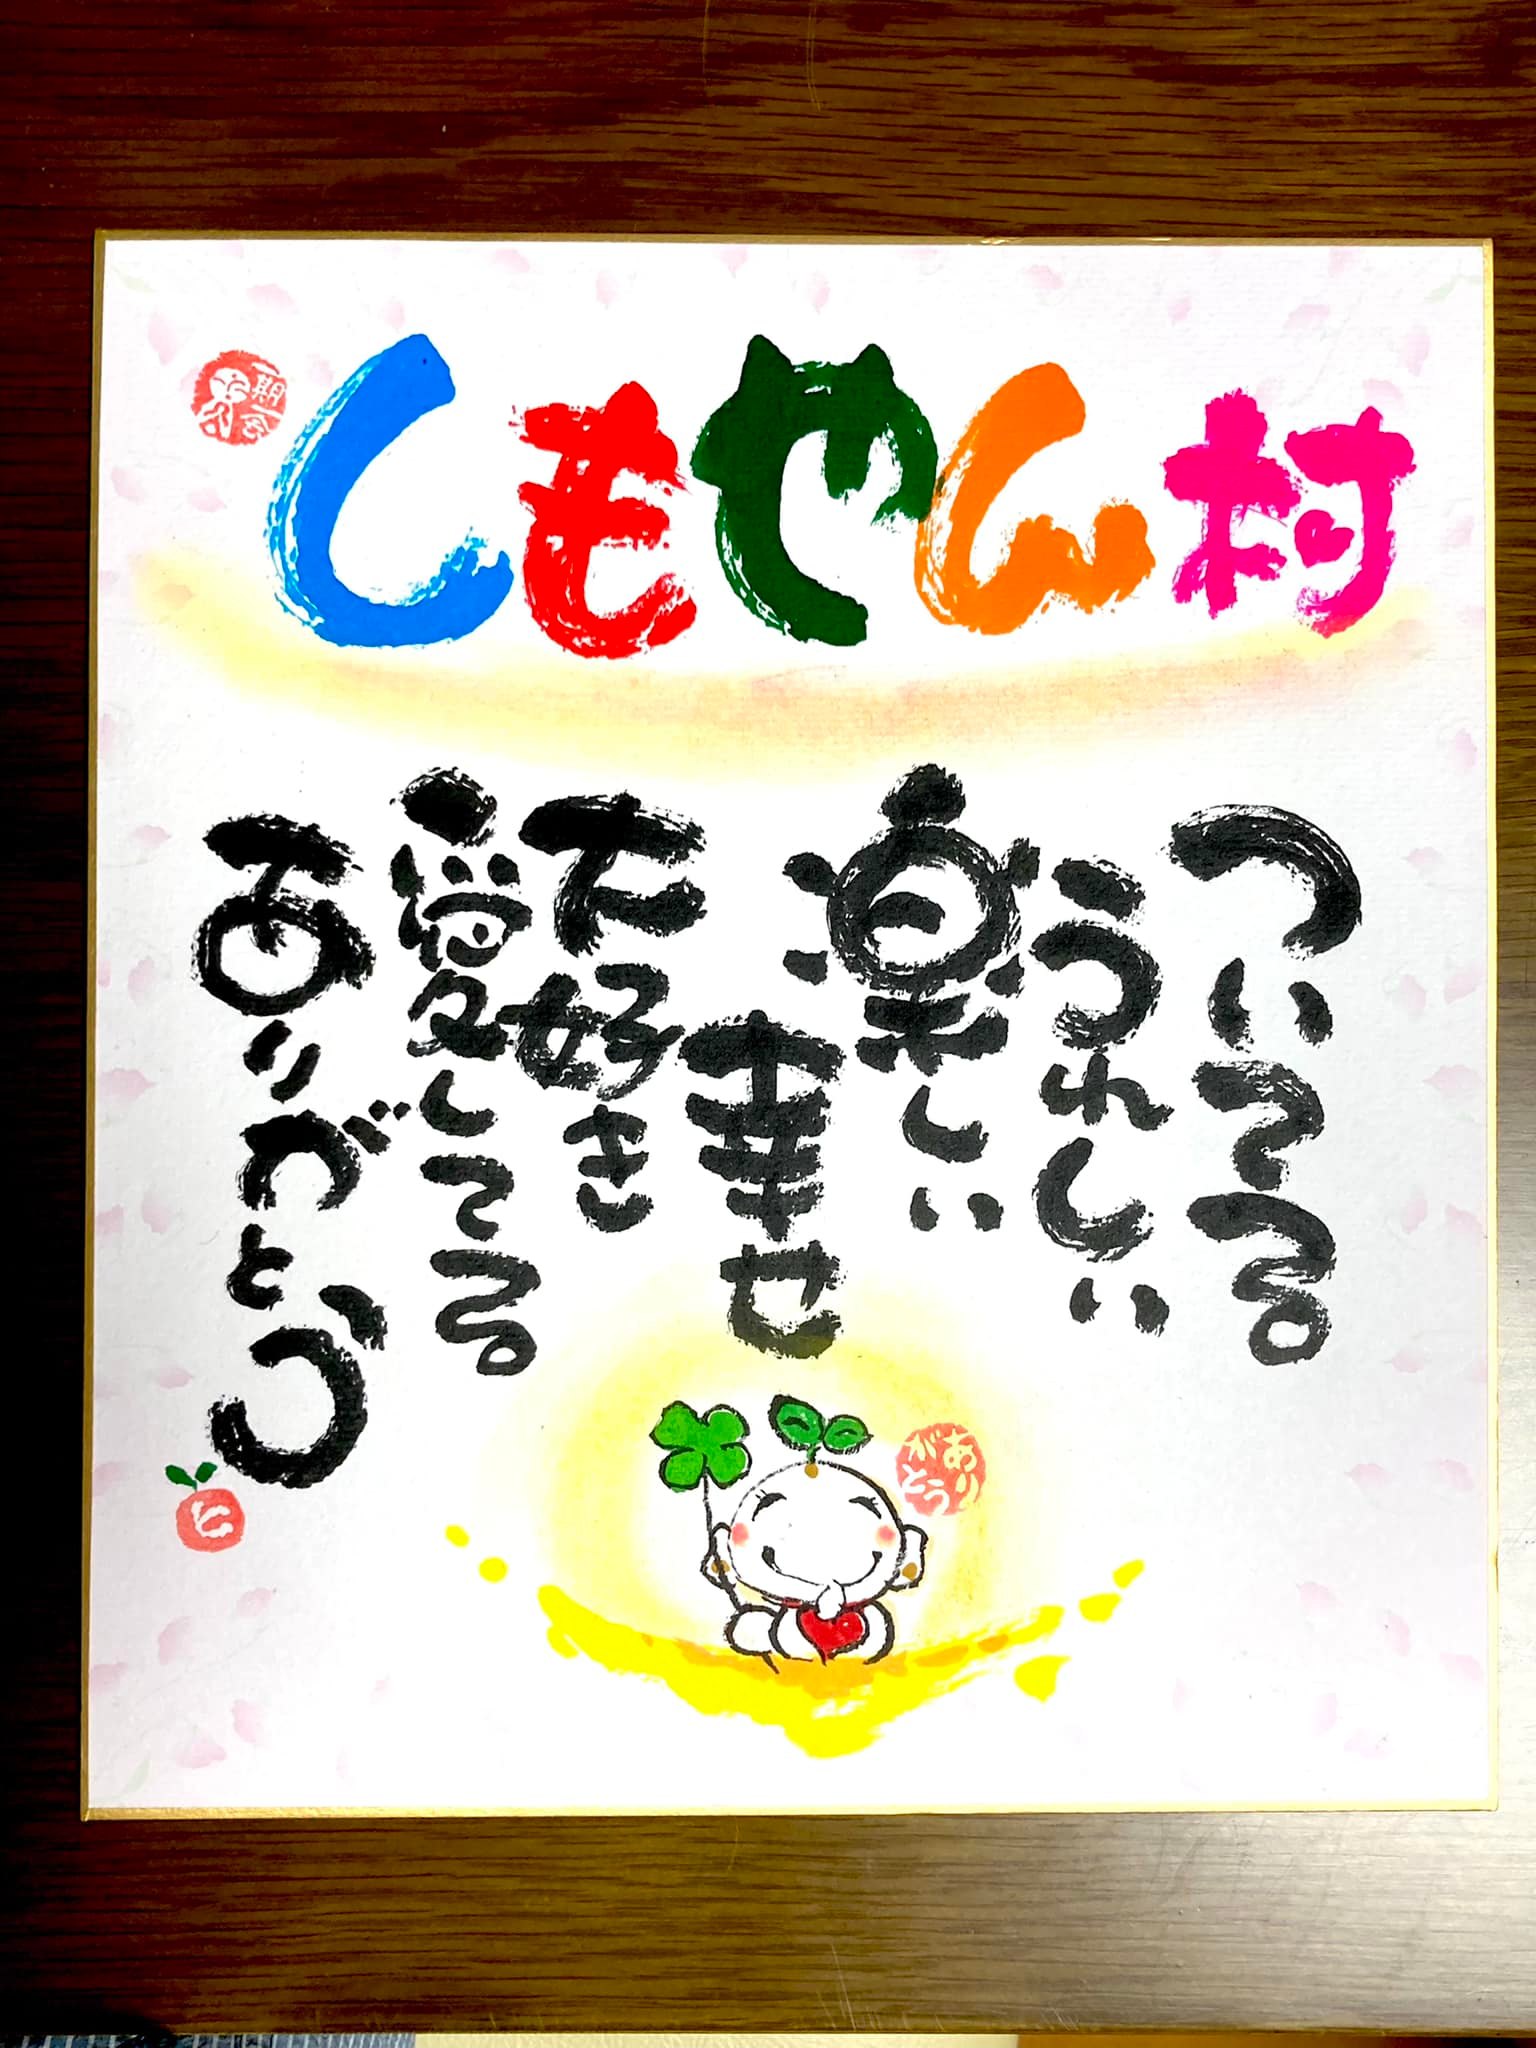 しもやん村
ついてる
うれしい
楽しい
幸せ
大好き
愛してる
ありがとう
一期一会
ありがとう